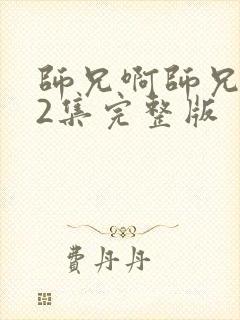 師兄啊師兄
2集完整版
費丹丹